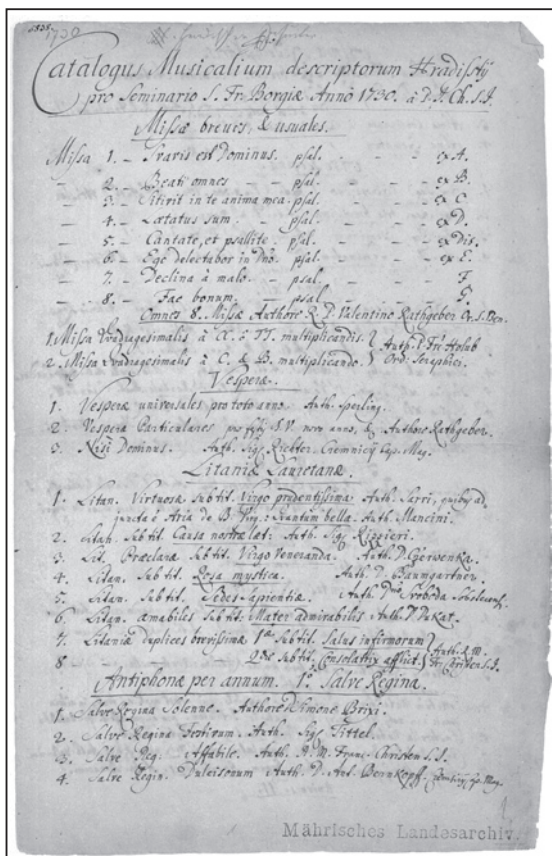 1730
Catalogus Musicalium descriptorum Hradissty
pro Seminario S. Fr. Borgiæ Anno 1730. à P. J. Ch. S.J.
Missæ breves, & usuales.
Missa 1. – Suavis est Dominus. psal. – – ex A.
– 2. – Beati omnes – – psal. – – ex B.
– 3. – Sitivit in te anima mea. psal. – – ex C
– 4. – Lætatus sum. – psal. – – ex D.
– 5. – Cantate, et psallite. psal. – – ex Dis.
– 6. – Ego delectabor in Dno. psal. – – ex E.
– 7. – Declina à malo. – psal. – – F.
– 8. – Fac bonum. – psal. – – G.
Omnes 8. Missæ Authore R. P. Valentino Rathgeber Or. S. Ben.
1. Missa Quadragesimalis à multiplicandis. Auth. Holub
2. Missa Quadragesimalis à C. & B. multiplicando. Ord. Seraphici.
Vesperæ.
1. Vesperæ universales pro toto anno. Auth. Sperling.
2. Vesperæ Particulares pro B.V. novo anno, & Authore Rathgeber.
3. Nisi Dominus. Auth. Sig. Richter.
Litaniæ Lauretanæ.
1. Litan. Virtuosæ subtit. Virgo prudentissima Auth. Sarri, quibus ad
juncta è Aria de B. Virg.: Quantum bella. Auth. Mancini.
2. Litan. subtit. Causa nostræ læt: Auth. Sig. Rippieri.
3. Lit. Præclaræ Subtit. Virgo Veneranda. Auth. D. Gerwenka.
4. Litan. Subtit. Rosa mystica. Auth. D. Baumgartner.
5. Litan. Subtit. Sedes Sapientiæ. Auth. Dno Svoboda
6. Litan. amabiles Subtit: Mater admirabilis Auth. D. Dukat.
7. Litaniæ duplices brevissimæ 1æ Subtit. Salus infirmorum Auth. R. M.
8 2dæ Subtit. Consolatrix afflict. Fr. Christen S.J.
Antiphonæ per annum. 1º. Salve Regina.
1. Salve Regina Solenne. Authore Simone Brixi.
2. Salve Regina Festivum. Auth. Sig. Tittel.
3. Salve Reg. Affabile. Auth. R. M. Franc. Christen S.J.
4. Salve Regin. Dulcisonum Auth. D. Ant. Bernkopff.
Mährisches Landesarchiv.